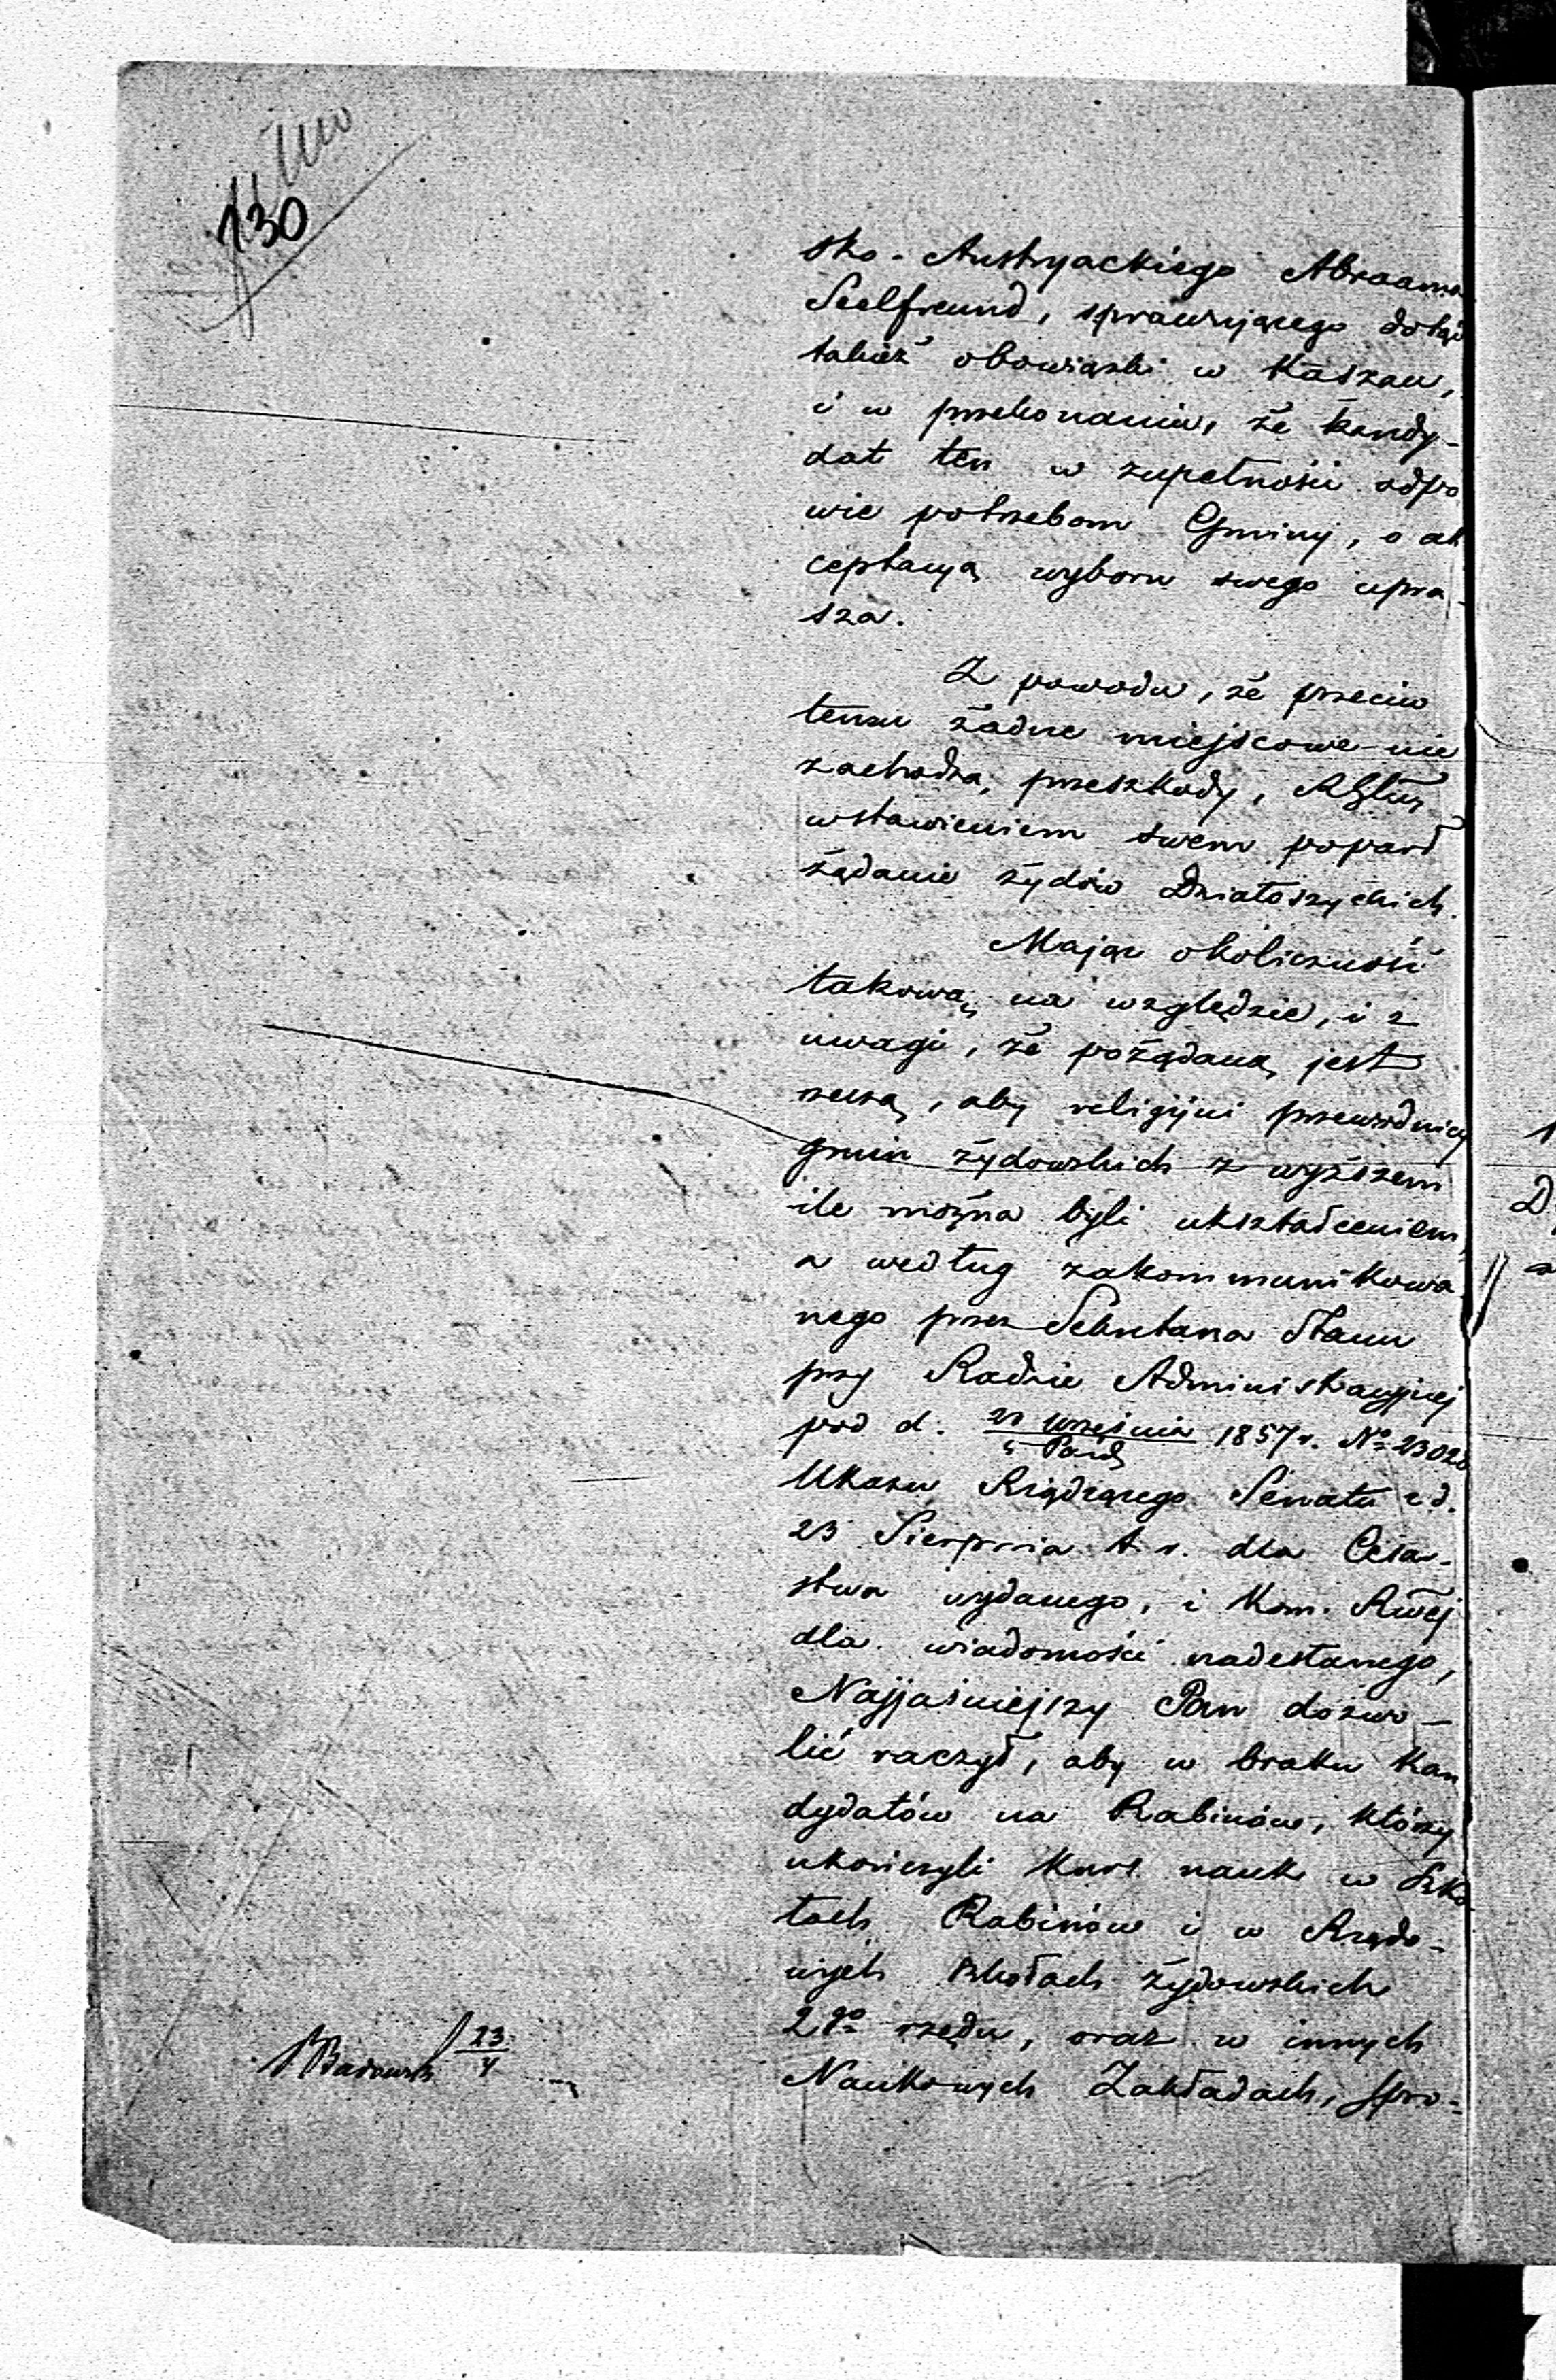 130
sko-Austryackiego Abraama
Seelfreund, sprawującego dotąd
takież obowiązki w Kaszau,
i w przekonaniu, że kandy-
dat ten w zupełności odpo
wie potrzebom Gminy, o ak
ceptacyą wyboru swego upra-
sza.
Z powodu, że przeciw
temu żadne miejscowe nie
zachodzą przeszkody,
wstawieniem swem poparł
żądanie żydów Działoszyckich.
Mając okoliczność
takową na względzie, i z
uwagi, że pożądaną jest
rzeczą, aby religijni przewodnicy
gmin żydowskich z wyższem
ile można byli ukształceniem,
a według zakommunikowa-
nego przez Sekretarza Stanu
przy Radzie Administracyjnej
pod d. Września 1857 r. No 23020
Ukazu Rządzącego Senatu z d.
23 Sierpnia t. r. dla Cesar-
stwa wydanego, i Kom. Rwej
dla wiadomości nadesłanego,
Najjaśniejszy Pan dozwo-
lić raczył, aby w braku kan
dydatów na Rabinów, którzy
ukończyli kurs nauk w Szko
łach Rabinów i w Rządo-
wych szkołach żydowskich
2go rzędu, oraz w innych
Naukowych Zakładach, spro-
23
4